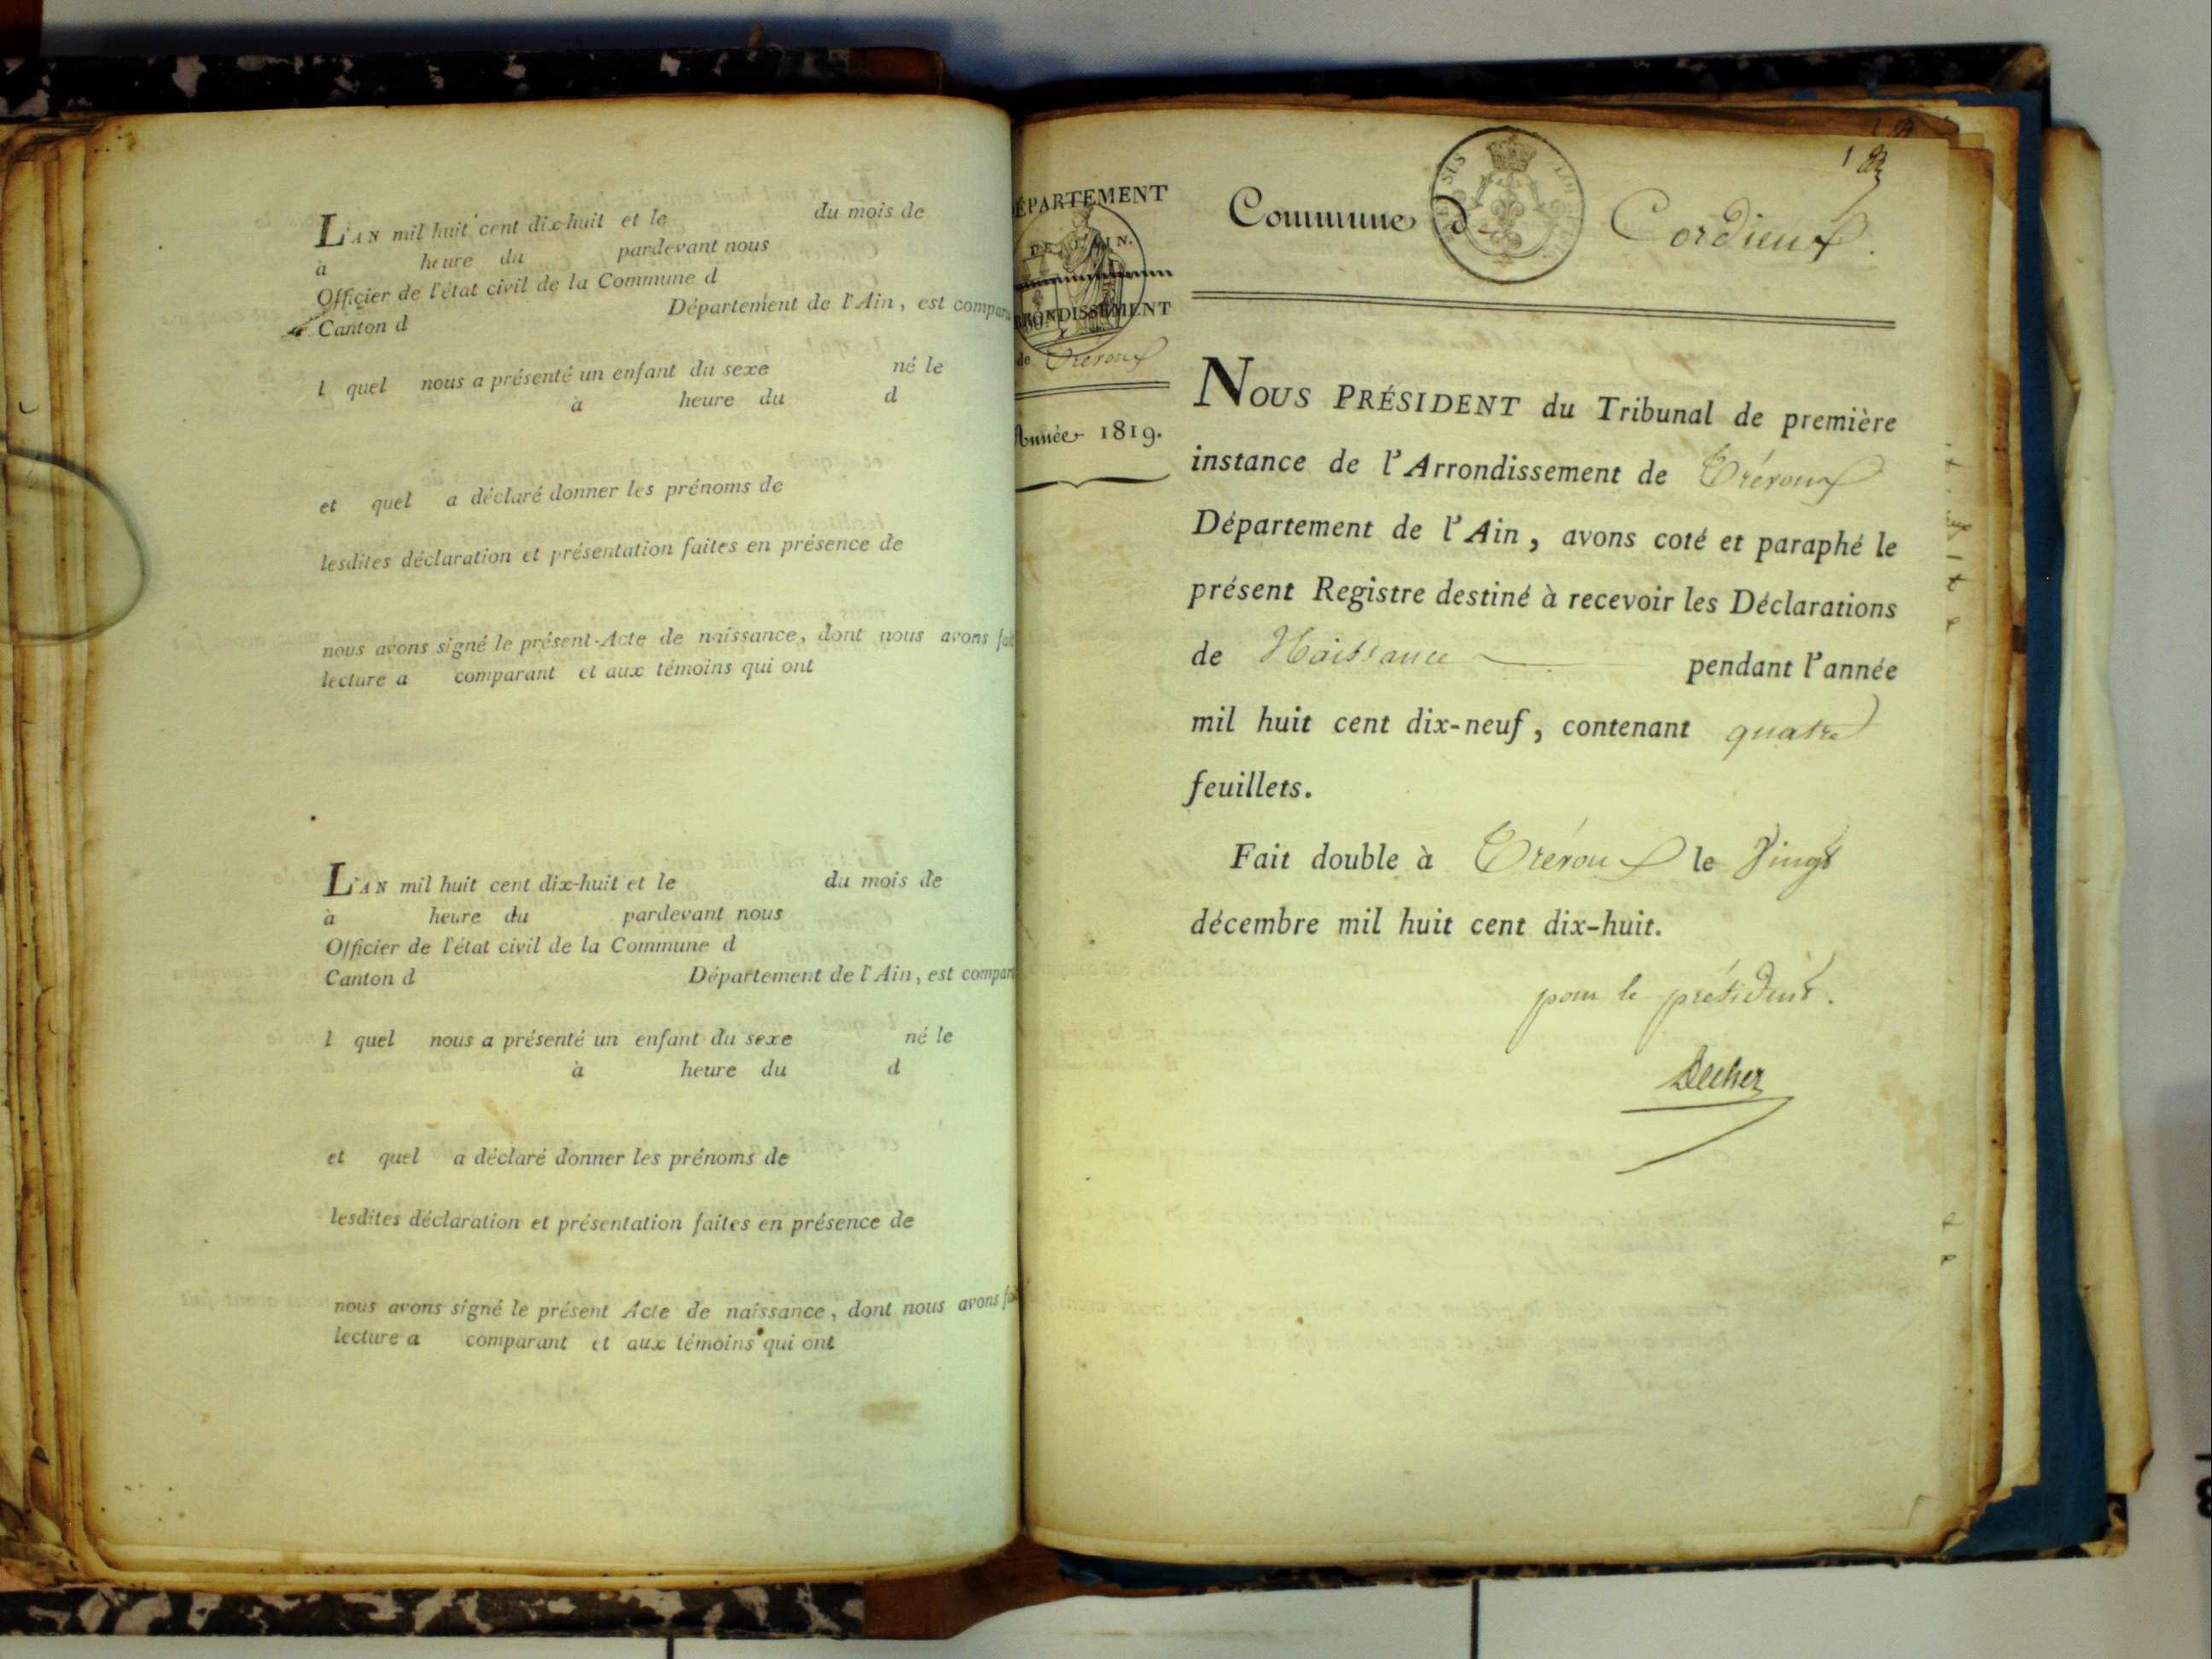 L'AN mil huit cent dix-huit et le du mois de
à heure du pardevant nous
Officier de l'état civil de la Commune d
Canton d Département de l'Ain, est compar
l quel nous a présenté un enfant du sexe né le
à heure du d
et quel a déclaré donner les prénoms de
lesdites déclaration et présentation faites en présence de
nous avons signé le présent Acte de naissance, dont nous avons fait
lecture a comparant et aux témoins qui ont
L'AN mil huit cent dix-huit et le du mois de
à heure du pardevant nous
Officier de l'état civil de la Commune d
Canton d Département de l'Ain, est compar
l quel nous a présenté un enfant du sexe né le
à heure du d
et quel a déclaré donner les prénoms de
lesdites déclaration et présentation faites en présence de
nous avons signé le présent Acte de naissance, dont nous avons fai
lecture a comparant et aux témoins qui ont
ÉPARTEMENT
DE L'AIN.
RONDISSEMENT
de Trévoux
Année 1819.
1
Commune d Cordieux.
NOUS PRÉSIDENT du Tribunal de première
instance de l'Arrondissement de Trévoux
Département de l'Ain, avons coté et paraphé le
présent Registre destiné à recevoir les Déclarations
de Naissance pendant l'année
mil huit cent dix-neuf, contenant quatre
feuillets.
Fait double à Trévoux le Vingt
décembre mil huit cent dix-huit.
pour le président.